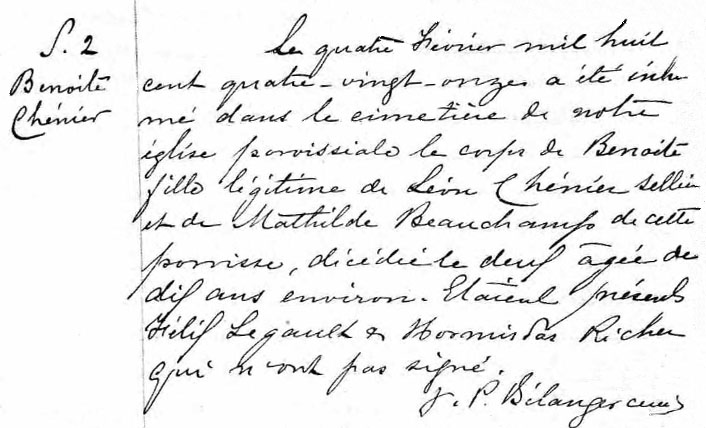 S. 2
Benoite
Chénier
Le quatre Février mil huit
cent quatre-vingt-onze a été inhu
mé dans le cimetière de notre
église paroissiale le corps de Benoite
fille légitime de Léon Chénier sellier
et de Mathilde Beauchamp de cette
paroisse, décédée le deux âgée de
dix ans environ. Etaient présents
Félix Legault & Hormisdas Richer
qui n'ont pas signé.
J. P. Bélanger curé